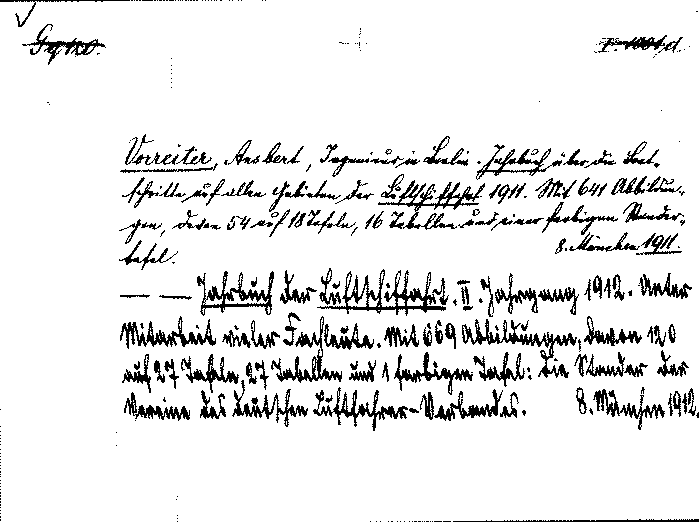 Vorreiter, Ansbert, Ingenieur in Berlin. Jahrbuch über die Fort-
schritte auf allen Gebieten der Luftschiffahrt 1911. Mit 641 Abbildun-
gen, davon 54 auf 18 Tafeln, 16 Tabellen und einer farbigen Stander-
tafel.
8. München 1911.
— — Jahrbuch der Luftschiffahrt. II. Jahrgang 1912. Unter
Mitarbeit vieler Fachleute. Mit 669 Abbildungen, davon 120
auf 27 Tafeln, 27 Tabellen und 1 farbigen Tafel: Die Stander der
Vereine des deutschen Luftfahrer-Verbandes. 8. München 1912.